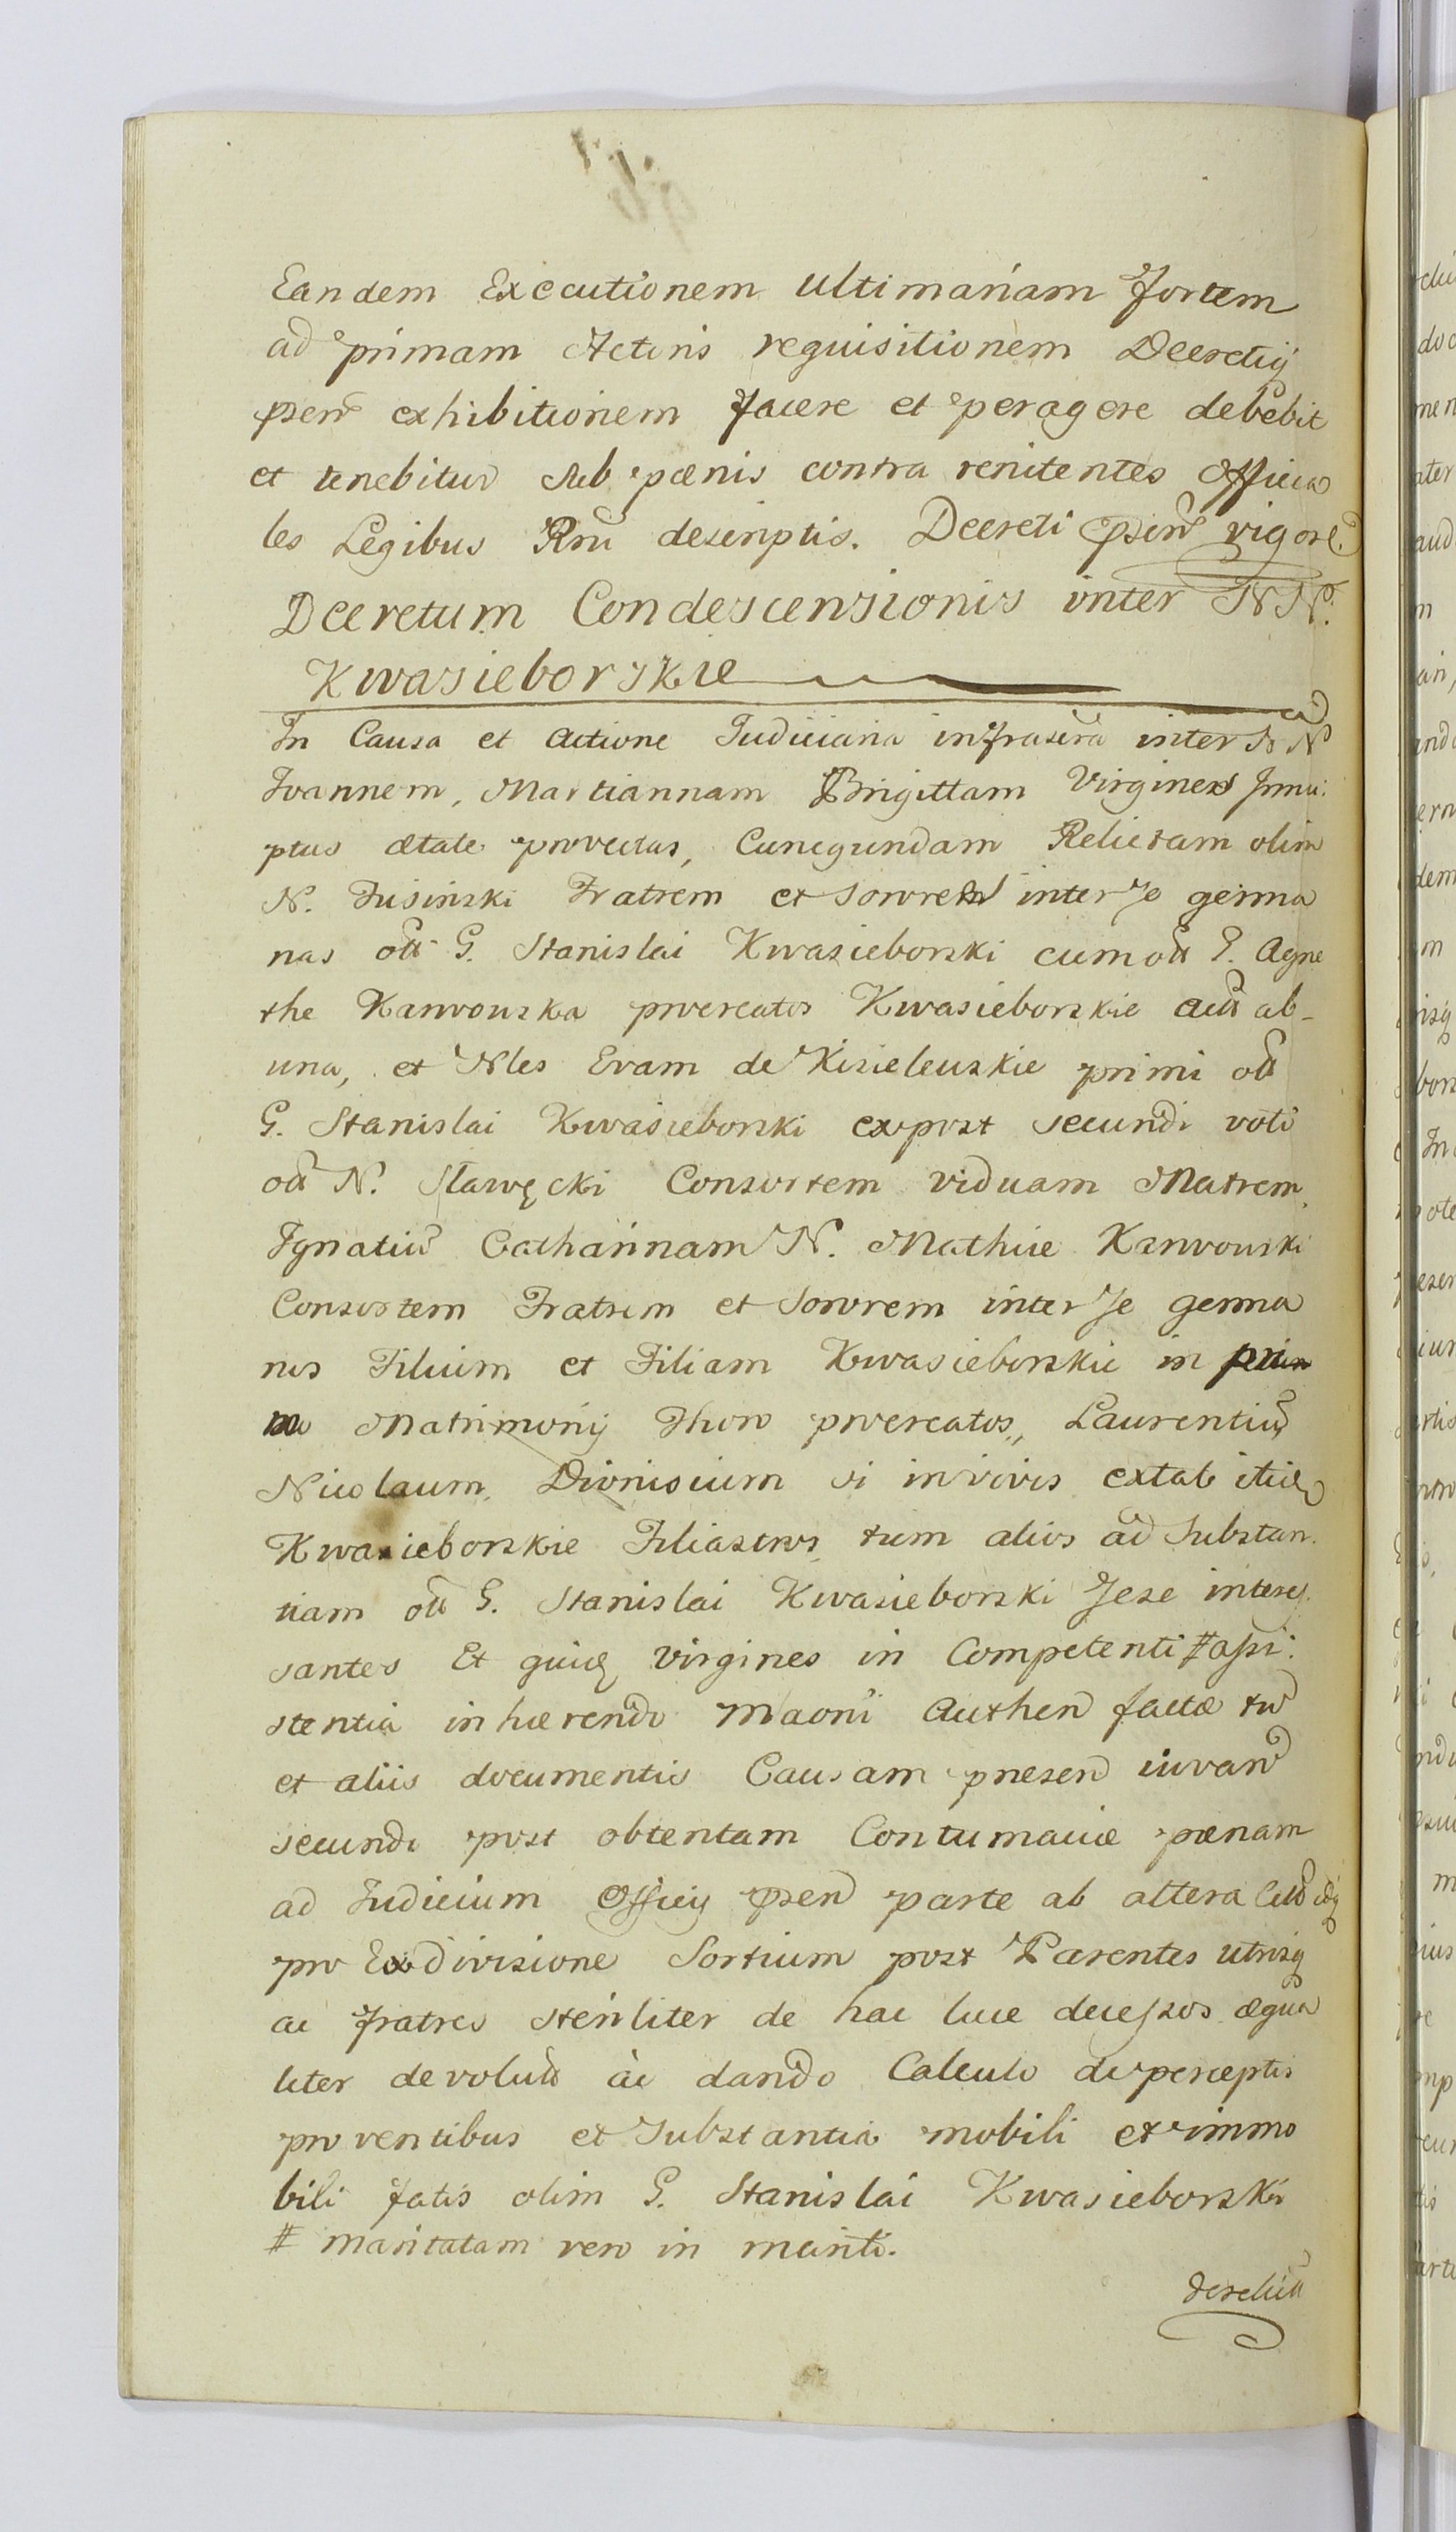 Eandem Executionem ultimariam fortem
ad primam Actoris requisitionem Decretiq
psen exhibitionem facere et peragere debebit
et tenebitur sub pœnis contra renitentes Officia
les Legibus Rni descriptis. Decreti psen vigore.
Decretum Condescensionis inter NN.
Kwasieborskie
In Causa et Actione Judiciaria infrascra inter NN
Joannem, Martiannam Brigittam Virgines Innu:
ptas ætate provectas, Cunegundam Relictam olim
N. Jusinski Fratrem et Sorores inter se germa
nas olt G. Stanislai Kwasieborski cum olt G. Agne
the Karwowska procreatos Kwasieborskie act ab-
una, et Nles Evam de Kisielewskie primi olt
G. Stanislai Kwasieborski expost secundi voti
olt N. Sławęcki Consortem viduam Matrem,
Ignatiu Catharinnam N. Mathiæ Karwowski
Consortem Fratrem et Sororem inter se germa
nos Filium et Filiam Kwasieborskie in prim
mo Matrimonij Thoro procreatos, Laurentiu
Nicolaum, Dionisium si in vivis extat itide
Kwasieborskie Filiastros tum alios ad Substan
tiam olt G. Stanislai Kwasieborski sese interes
santes Et quidē virgines in Competenti # assi:
stentia inhærendo Maoni Authen factæ tu
et aliis documentis Causam presen iuvan
secundo post obtentam Contumaciæ pœnam
ad Judicium Officij psen parte ab altera
pro Exdivisione Sortium post Parentes utrisq
ac fratres steriliter de hac luce decessos æqua
liter devolut ac dando Calculo de perceptis
proventibus et Substantia mobili et immo
bili fatis olim G. Stanislai Kwasieborski
# maritatam vero in mariti.
derelict